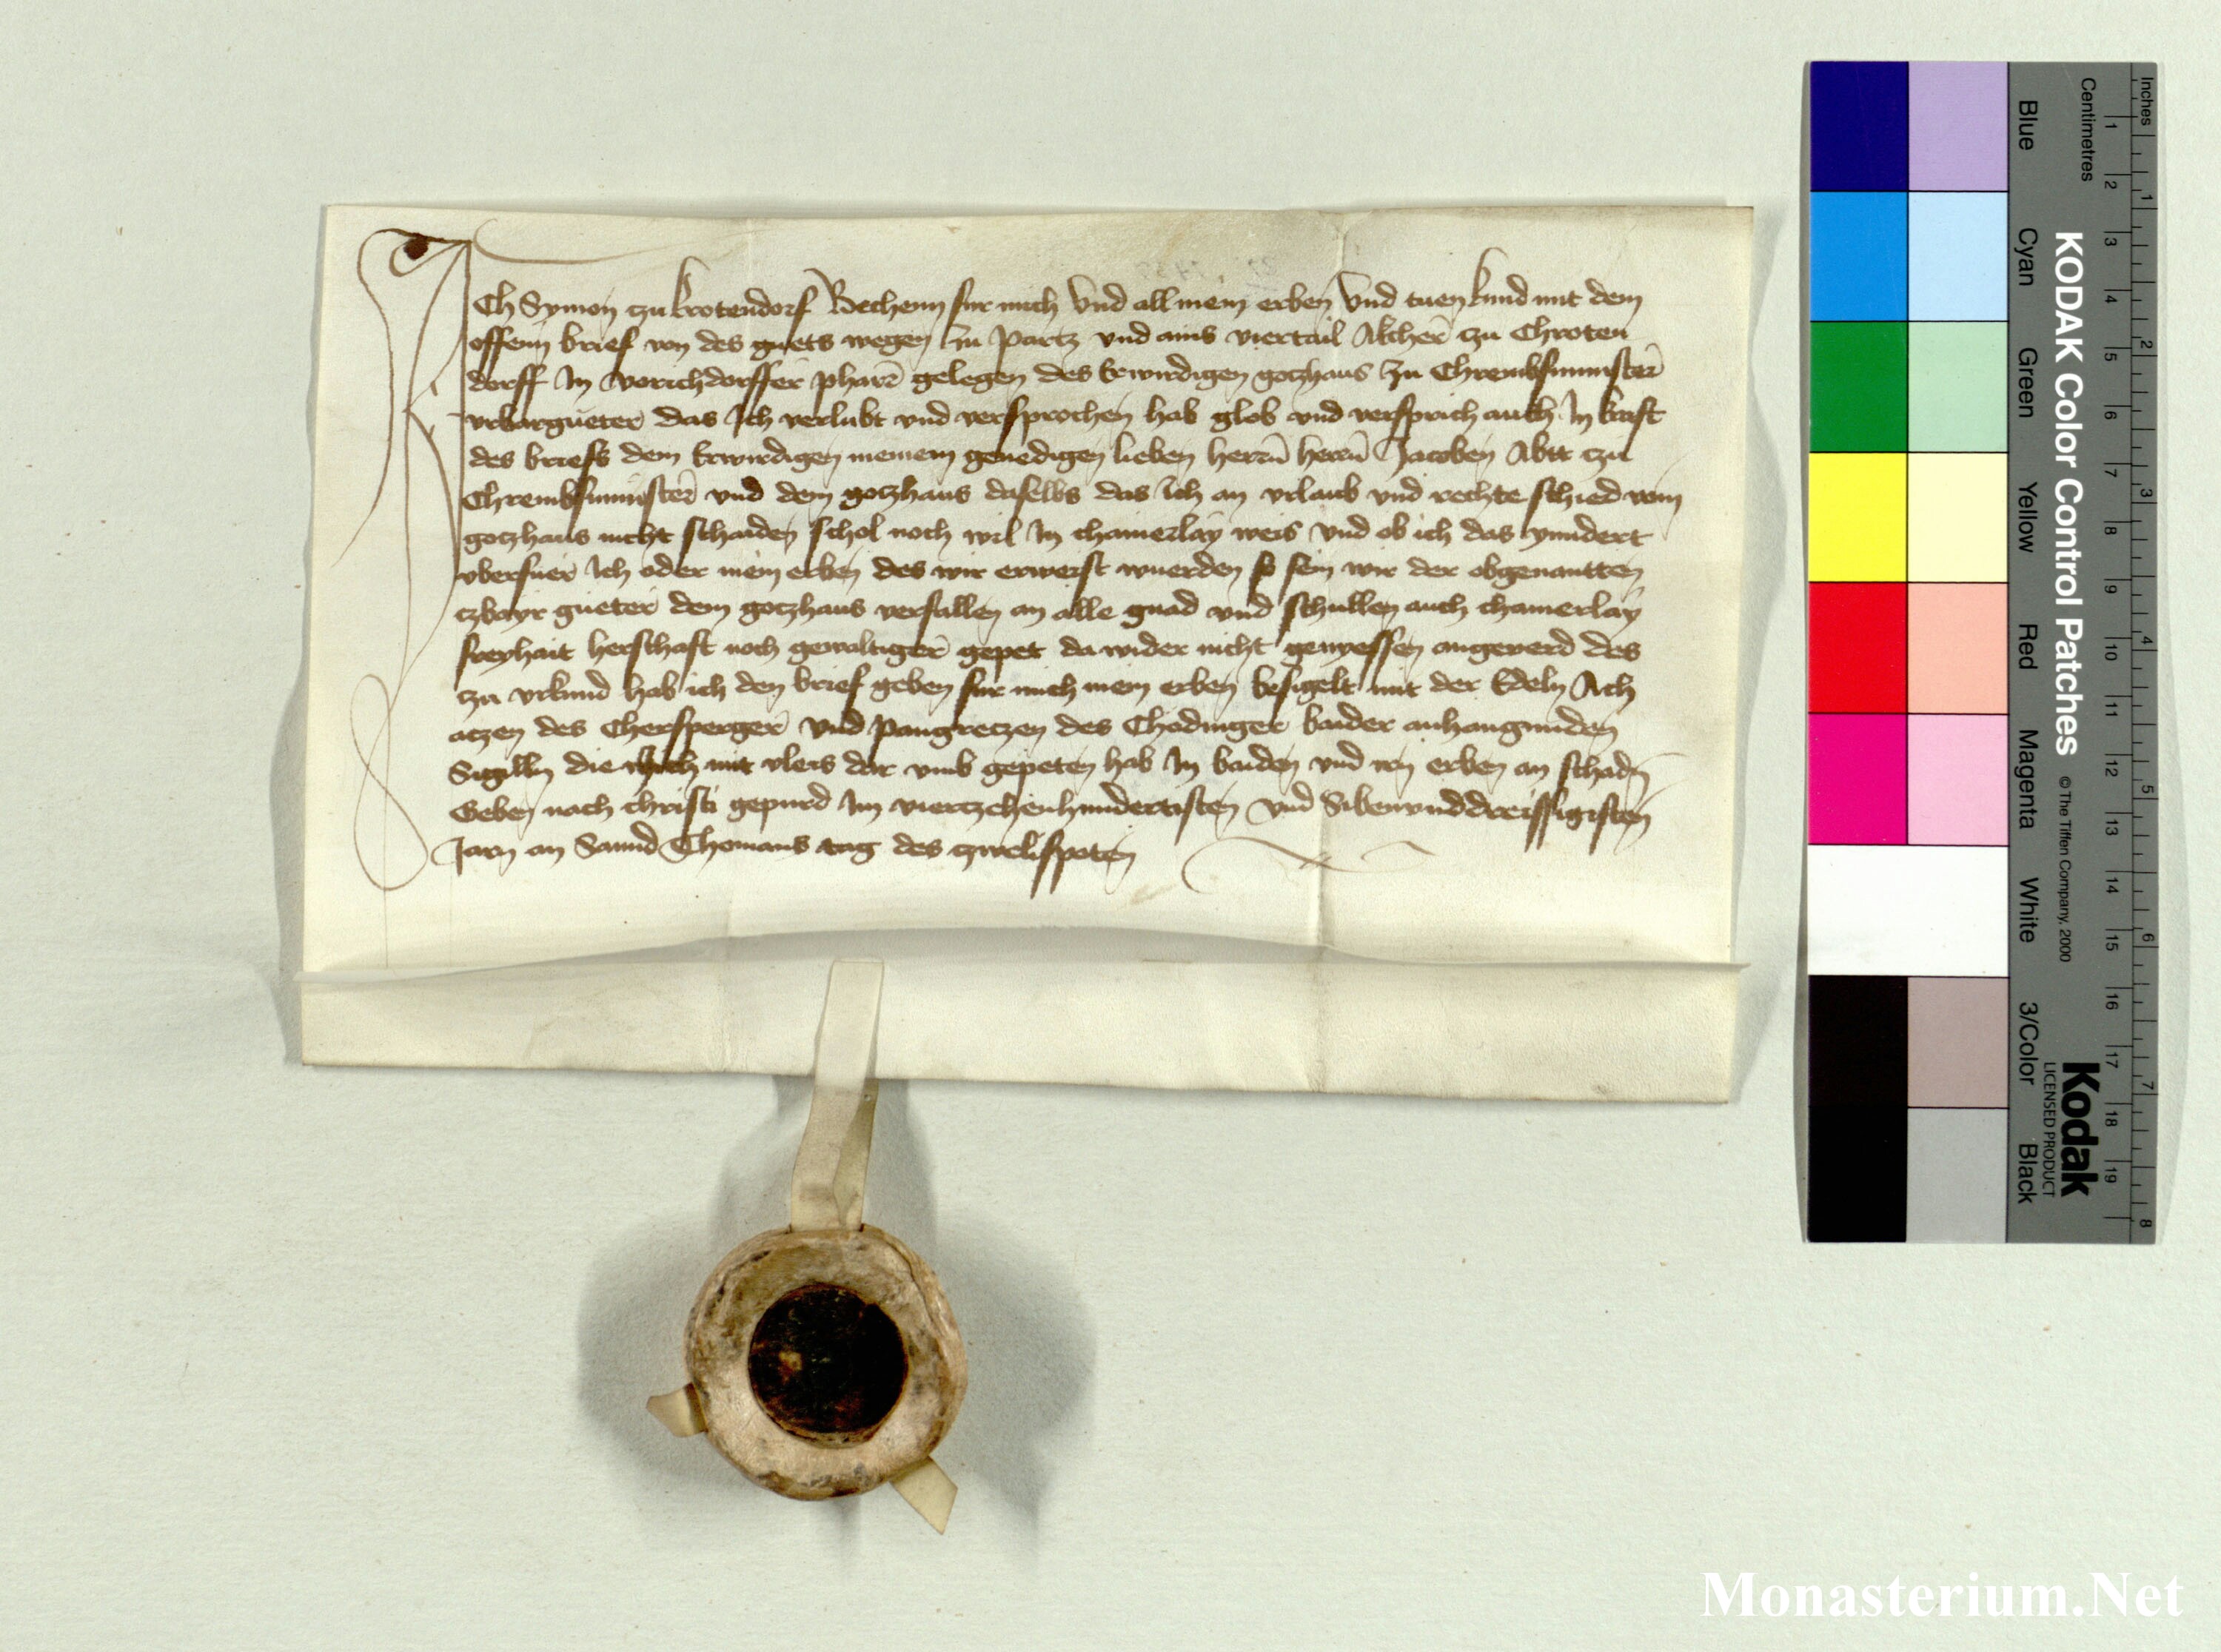 Ich Symon czu krotendorf Bechenn fur mich Vnd all mein erben Vnd tuen kund mit dem
offenn brief von des guets wegen im Partz vnd ains viertail Akcher czu Chroten
dorff In vorichdorffer pharr gelegen des Erwirdigen gotzhaus Zu Chrembsmunster
vrbargueter das Ich verlubt vnd versprochen hab glob vnd versprich auch In kraft
des briefs dem Erwirdigen meinem genedigen lieben herrn herrn Jacoben Abtt czu
Chrembsmunster vnd dem gotzhaus daselbs das Ich an vrlaub vnd rechte schied vom
gotzhaus nicht schaiden schol noch wil In chainerlay weis vnd ob ich das yndert
vberfuer Ich oder mein erben des wir erweist wuerden so sein wir der obgenantten
gueter dem gotzhaus verfallen an alle gnad vnd schullen auch chainerlay
freyhait herschaft noch gewaltiger gepet da wider nicht genyessen angeuerd des
zu vrkund hab ich den brief geben fur mich mein erben besigelt mit der Edeln Ach
atzen des Chersperger vnd Pangretzen des Chadinger baider anhangunden
Sigilln die ich mit vleis dar vmb gepeten hab In baiden vnd irn erben an schadn
Geben nach christi gepurd Im viertzehenhundertisten vnd Sibenvnddreissigisten
Jarn an Sannd Thomans tag des czwelifpoten
Inches
Centimetres
1 2 3 4 5 6 7 8
1 2 3 4 5 6 7 8 9 10 11 12 13 14 15 16 17 18 19
KODAK Color Control Patches
© The Tiffen Company, 2000
Kodak
LICENSED PRODUCT
Blue
Cyan
Green
Yellow
Red
Magenta
White
3/Color
Black
Monasterium.Net